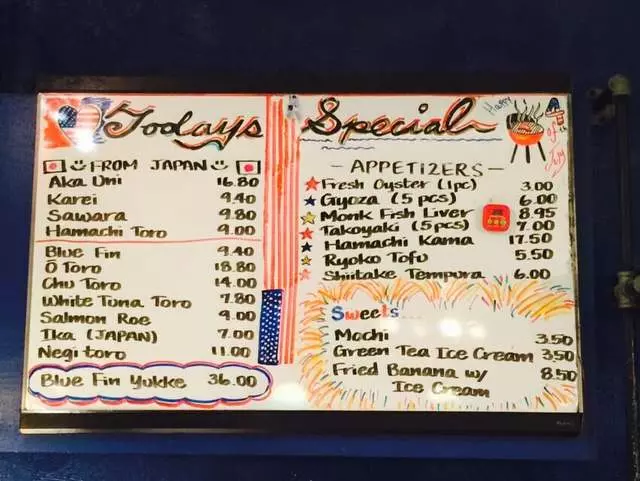 Todays Special
Happy 4th of July
☺FROM JAPAN☺
Aka Uni 16.80
Karei 9.40
Sawara 9.80
Hamachi Toro 9.00
Blue Fin 9.40
Ō Toro 18.80
Chu Toro 14.00
White Tuna Toro 7.80
Salmon Roe 9.00
Ika (JAPAN) 7.00
Negitoro 11.00
Blue Fin Yukke 36.00
- APPETIZERS -
Fresh Oyster (1pc) 3.00
Gyoza (5 pcs) 6.00
Monk Fish Liver 8.95
Takoyaki (5 pcs) 7.00
Hamachi Kama 17.50
Ryoko Tofu 5.50
Shiitake Tempura 6.00
Sweets...
Mochi 3.50
Green Tea Ice Cream 3.50
Fried Banana w/ 8.50
Ice Cream